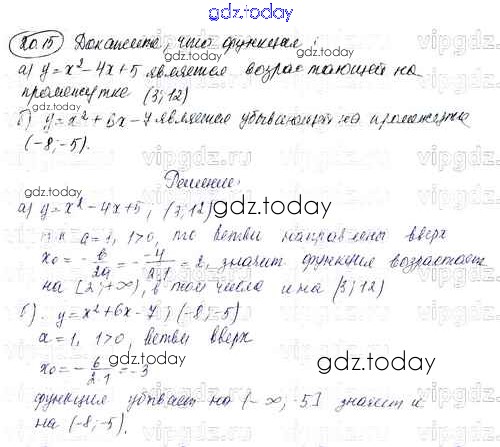 gdz.today
20.15 Докажите, что функция:
а) y = x² - 4x + 5 является возрастающей на
промежутке (3; 12)
б) y = x² + 6x - 7 является убывающей на промежутке
(-8; -5).
Решение:
а) y = x² - 4x + 5; (3; 12)
т.к a = 1, 1>0, то ветви направлены вверх
x₀ = -в/2a = - -4/2·1 = 2, значит функция возрастает
на [2; +∞), в том числе и на (3; 12)
б). y = x² + 6x - 7; (-8; -5)
a = 1, 1>0, ветви вверх
x₀ = - 6/2·1 = -3
функция убывает на (-∞; -5] значит и
на (-8; -5).
gdz.today
gdz.today
gdz.today
gdz.today
gdz.today
gdz.today
gdz.today
vipgdz.ru
vipgdz.ru
vipgdz.ru